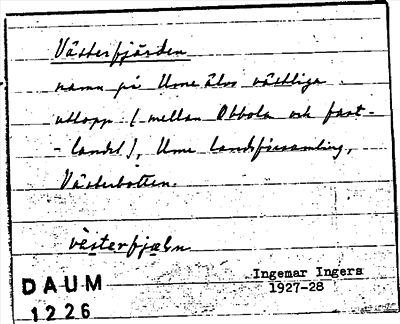 Västerfjärden
namn på Ume älvs västliga
utlopp (mellan Obbola och fast-
-landet), Ume landsförsamling,
Västerbotten.
västerfjæln
DAUM
1226
Ingemar Ingers
1927-28